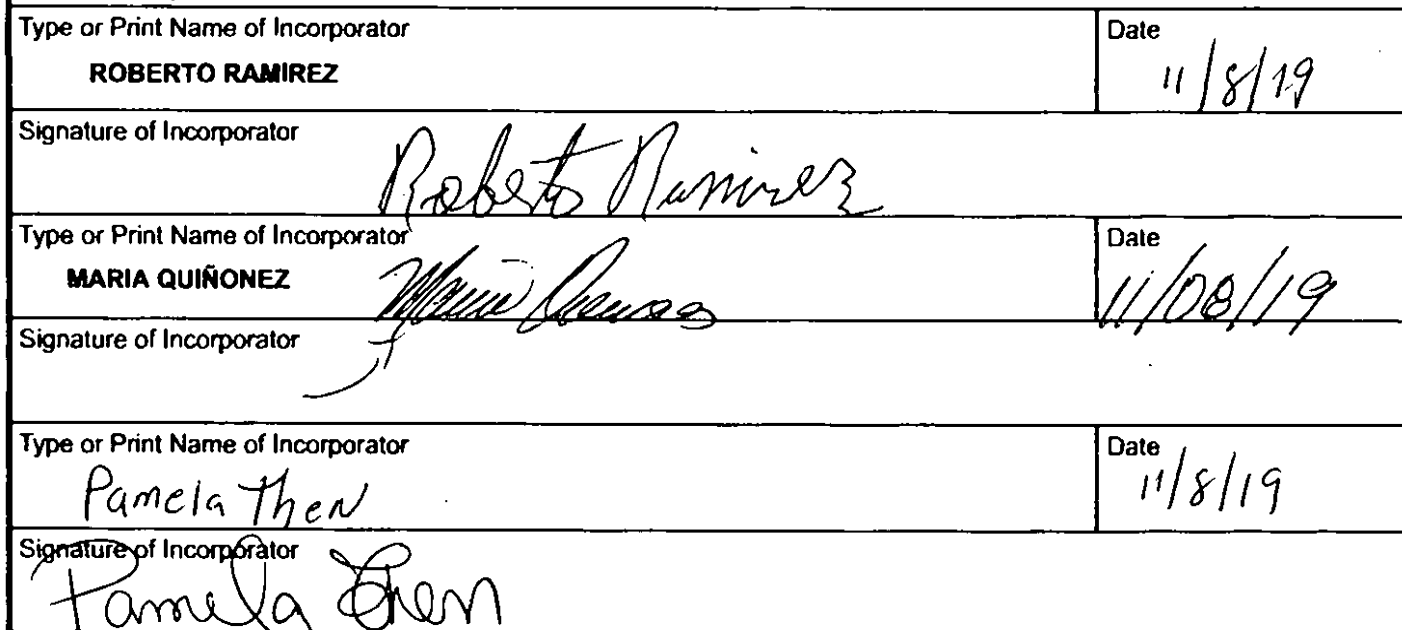 Type or Print Name of Incorporator
Date
ROBERTO RAMIREZ
11/8/19
Signature of Incorporator
Roberto Ramirez
Type or Print Name of Incorporator
Date
MARIA QUIÑONEZ
11/08/19
Signature of Incorporator
Type or Print Name of Incorporator
Date
Pamela Then
11/8/19
Signature of Incorporator
Pamela Then